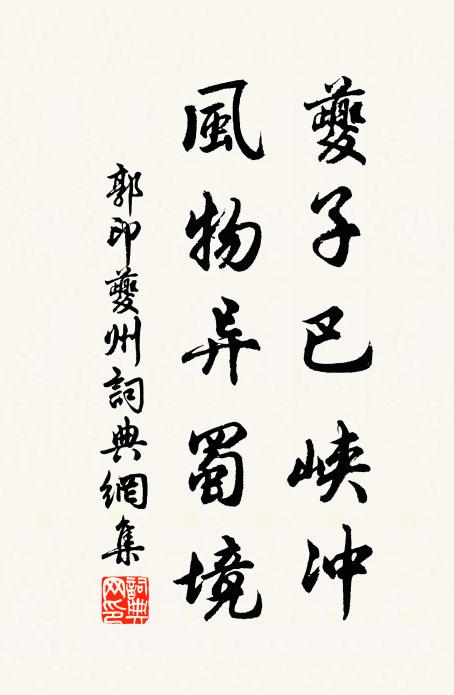 夔子巴峽冲
風物异蜀境
郭印夔州詞典網集
詞典网印